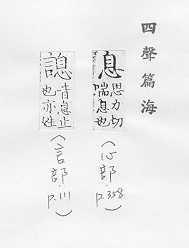 四聲篇海
息
思力切
喘息也
（心部 p.358）
謥
言息止
也亦姓
（言部 p.111）